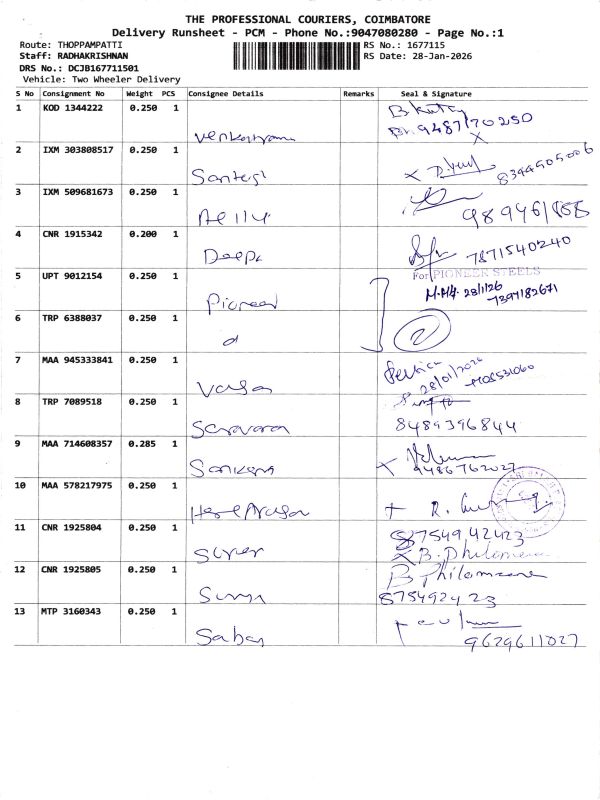 THE PROFESSIONAL COURIERS, COIMBATORE
Delivery Runsheet - PCM - Phone No.:9047080280 - Page No.:1
Route: THOPPAMPATTI
RS No.: 1677115
Staff: RADHAKRISHNAN
RS Date: 28-Jan-2026
DRS No.: DCJB167711501
Vehicle: Two Wheeler Delivery
S No Consignment No Weight PCS Consignee Details Remarks Seal & Signature
1 KOD 1344222 0.250 1
9487170250
X
2 IXM 303808517 0.250 1
X 8344505006
3 IXM 509681673 0.250 1
4 CNR 1915342 0.200 1 Deepa
7871540240
5 UPT 9012154 0.250 1 Pioneed
For PIONEER STEELS
28/1/26
7397182671
6 TRP 6388037 0.250 1 d
2
7 MAA 945333841 0.250 1
28/01/2026
8 TRP 7089518 0.250 1 Saravana
8489396844
9 MAA 714608357 0.285 1 Sankara
X 9486762027
10 MAA 578217975 0.250 1
R.
11 CNR 1925804 0.250 1
8754942423
X B. Philomena
12 CNR 1925805 0.250 1
B Philomena
875492423
13 MTP 3160343 0.250 1 Sabari
9629611027